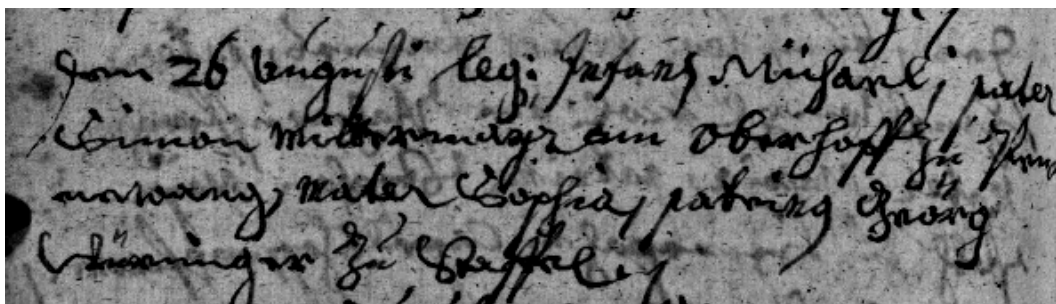 Den 26 Augusti leg: Infans Michael, pater
Simon Mittermayr am Oberhoff zu
mater Sophia, patrinus Geörg
zu Staffel